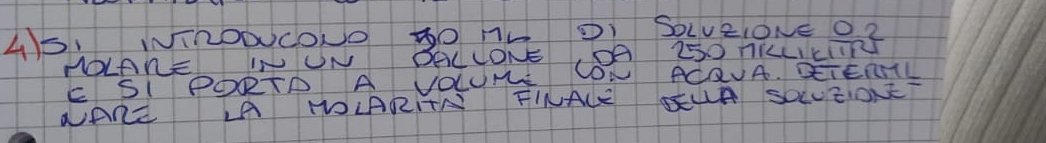 4) SI INTRODUCONO 50 ML DI SOLUZIONE 0.2
MOLARE IN UN PALLONE DA 250 MILLILITRI
E SI PORTA A VOLUME CON ACQUA. DETERMI
NARE LA MOLARITÀ FINALE DELLA SOLUZIONE